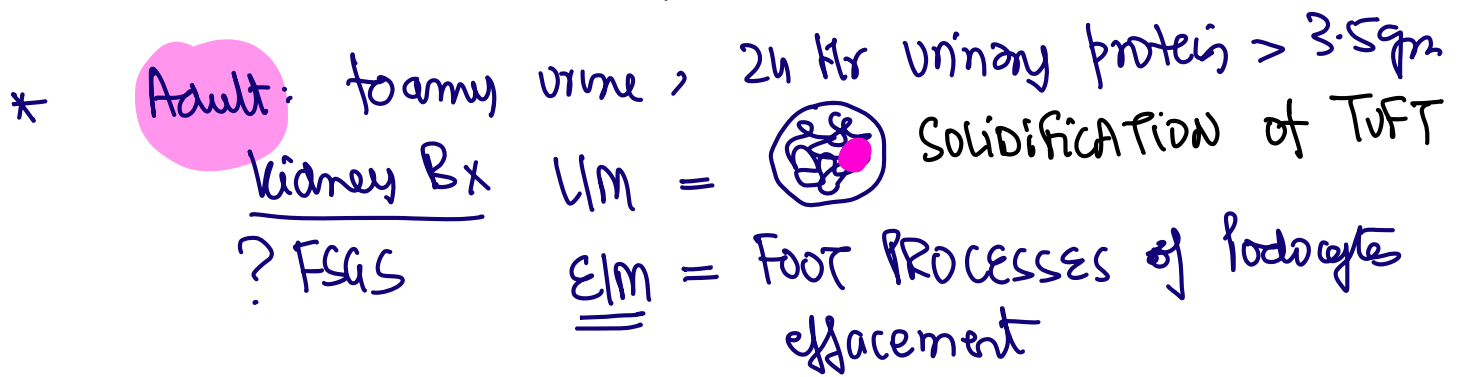 * Adult: foamy urine, 24 Hr urinary protein > 3.5gm
Kidney Bx L/M = SOLIDIFICATION of TUFT
? FSGS E/M = FOOT PROCESSES of Podocytes
effacement